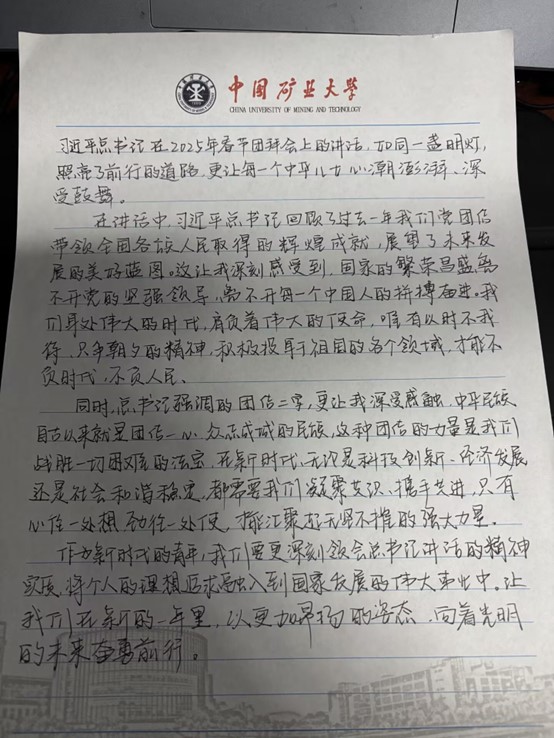 中国矿业大学
CHINA UNIVERSITY OF MINING AND TECHNOLOGY
习近平总书记在2025年春节团拜会上的讲话,如同一盏明灯,
照亮了前行的道路,更让每一个中华儿女心潮澎湃、深
受鼓舞。
在讲话中,习近平总书记回顾了过去一年我们党团结
带领全国各族人民取得的辉煌成就,展望了未来发
展的美好蓝图。这让我深刻感受到,国家的繁荣昌盛离
不开党的坚强领导,离不开每一个中国人的拼搏奋进。我
们身处伟大的时代,肩负着伟大的使命,唯有以时不我
待、只争朝夕的精神,积极投身于祖国的各个领域,才能不
负时代,不负人民。
同时,总书记强调的团结二字,更让我深受感触,中华民族
自古以来就是团结一心、众志成城的民族,这种团结的力量是我们
战胜一切困难的法宝。在新时代,无论是科技创新、经济发展
还是社会和谐稳定,都需要我们凝聚共识、携手共进,只有
心往一处想,劲往一处使,才能汇聚起无坚不摧的强大力量。
作为新时代的青年,我们要更深刻领会总书记讲话的精神
实质,将个人的理想追求融入到国家发展的伟大事业中。让
我们在新的一年里,以更加昂扬的姿态,向着光明
的未来奋勇前行。